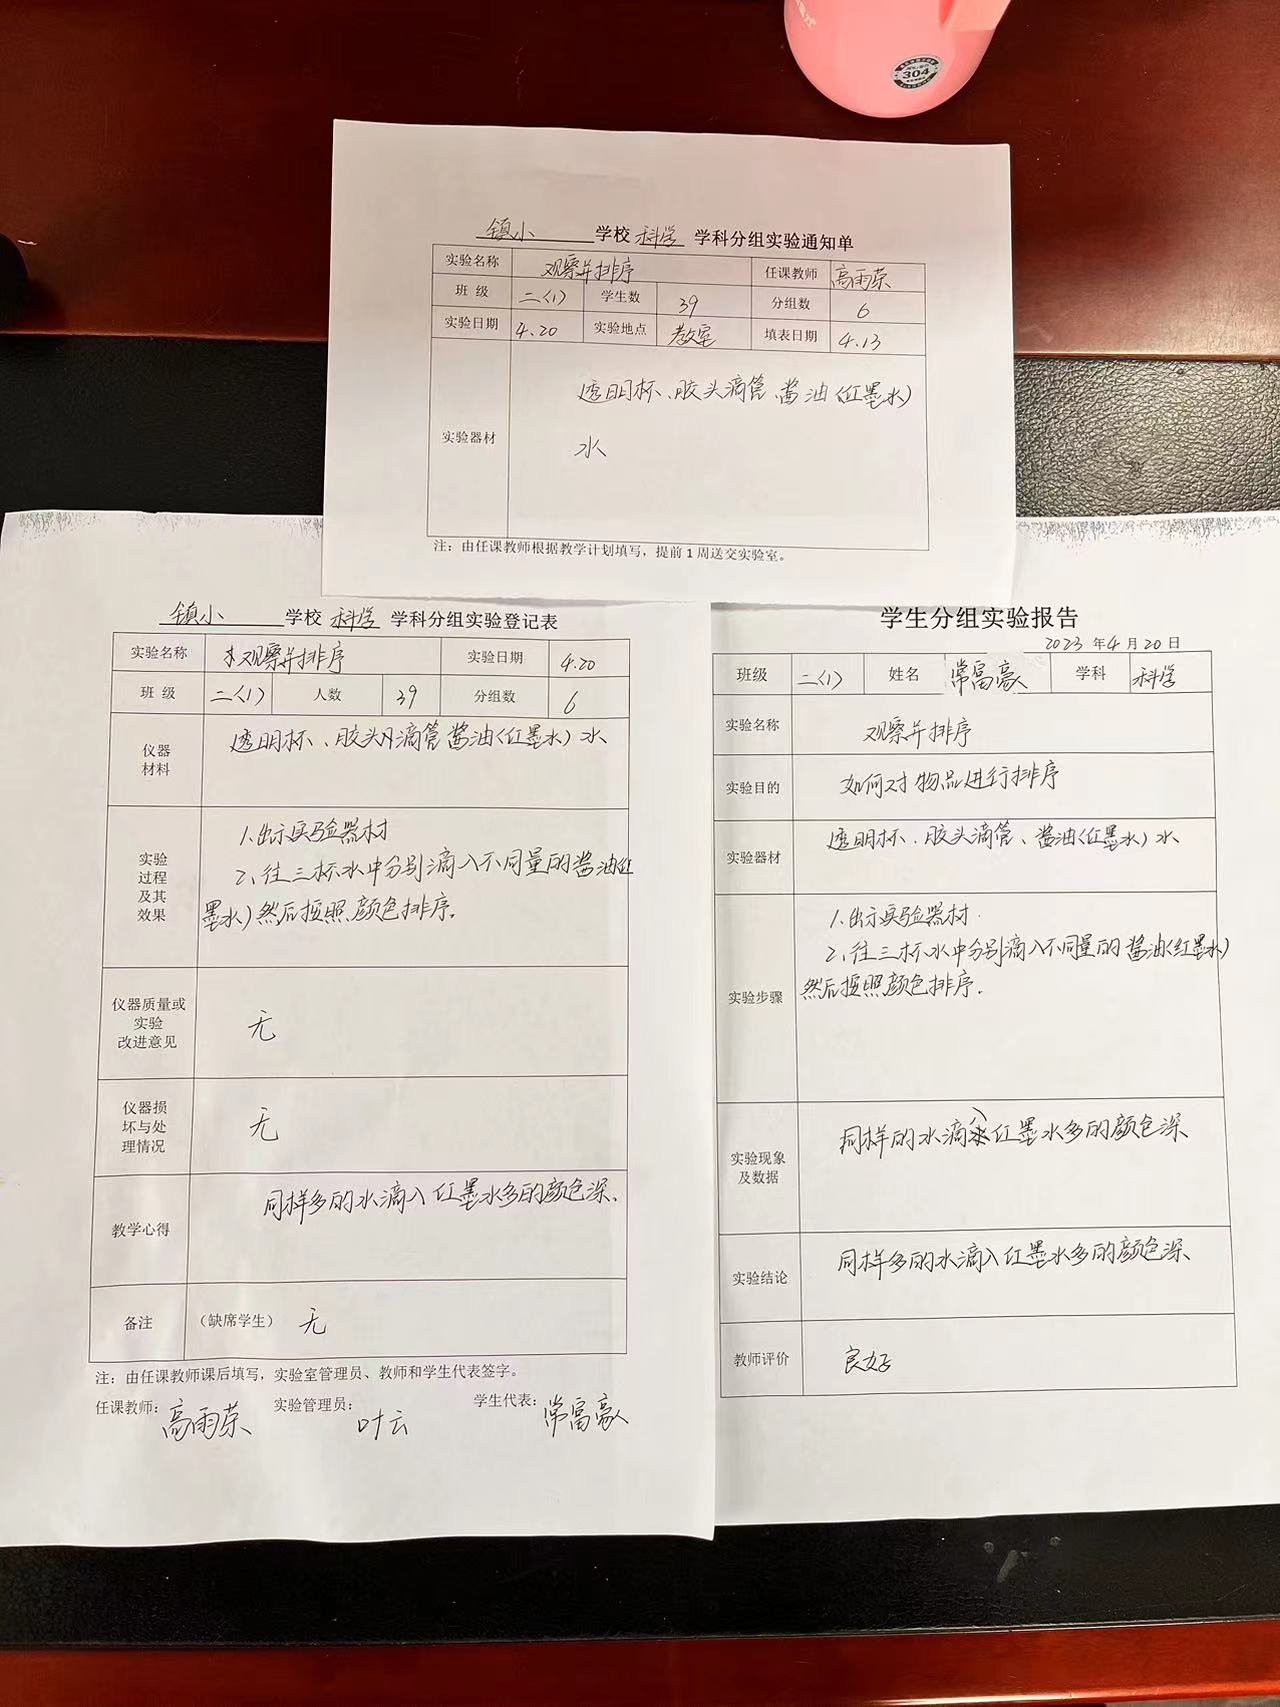 304
镇小 学校 科学 学科分组实验通知单
实验名称 观察并排序 任课教师 高雨荣
班 级 二(1) 学生数 39 分组数 6
实验日期 4.20 实验地点 教室 填表日期 4.13
实验器材 透明杯、胶头滴管、酱油(红墨水)
水
注：由任课教师根据教学计划填写，提前 1 周送交实验室。
镇小 学校 科学 学科分组实验登记表
实验名称 观察并排序 实验日期 4.20
班 级 二(1) 人数 39 分组数 6
仪器
材料
透明杯、胶头滴管 酱油(红墨水) 水
实验
过程
及其
效果
1.出示实验器材
2、往三杯水中分别滴入不同量的酱油(红
墨水)然后按照颜色排序.
仪器质量或
实验
改进意见
无
仪器损
坏与处
理情况
无
教学心得 同样多的水滴入红墨水多的颜色深、
备注 （缺席学生） 无
注：由任课教师课后填写，实验室管理员、教师和学生代表签字。
任课教师：高雨荣 实验管理员：叶云 学生代表：常富豪
学生分组实验报告
2023 年 4 月 20 日
班级 二(1) 姓名 常富豪 学科 科学
实验名称 观察并排序
实验目的 如何对物品进行排序
实验器材 透明杯、胶头滴管、酱油(红墨水) 水
实验步骤
1.出示实验器材.
2、往三杯水中分别滴入不同量的酱油(红墨水)
然后按照颜色排序.
实验现象
及数据
同样的水滴入红墨水多的颜色深、
实验结论 同样多的水滴入红墨水多的颜色深、
教师评价 良好